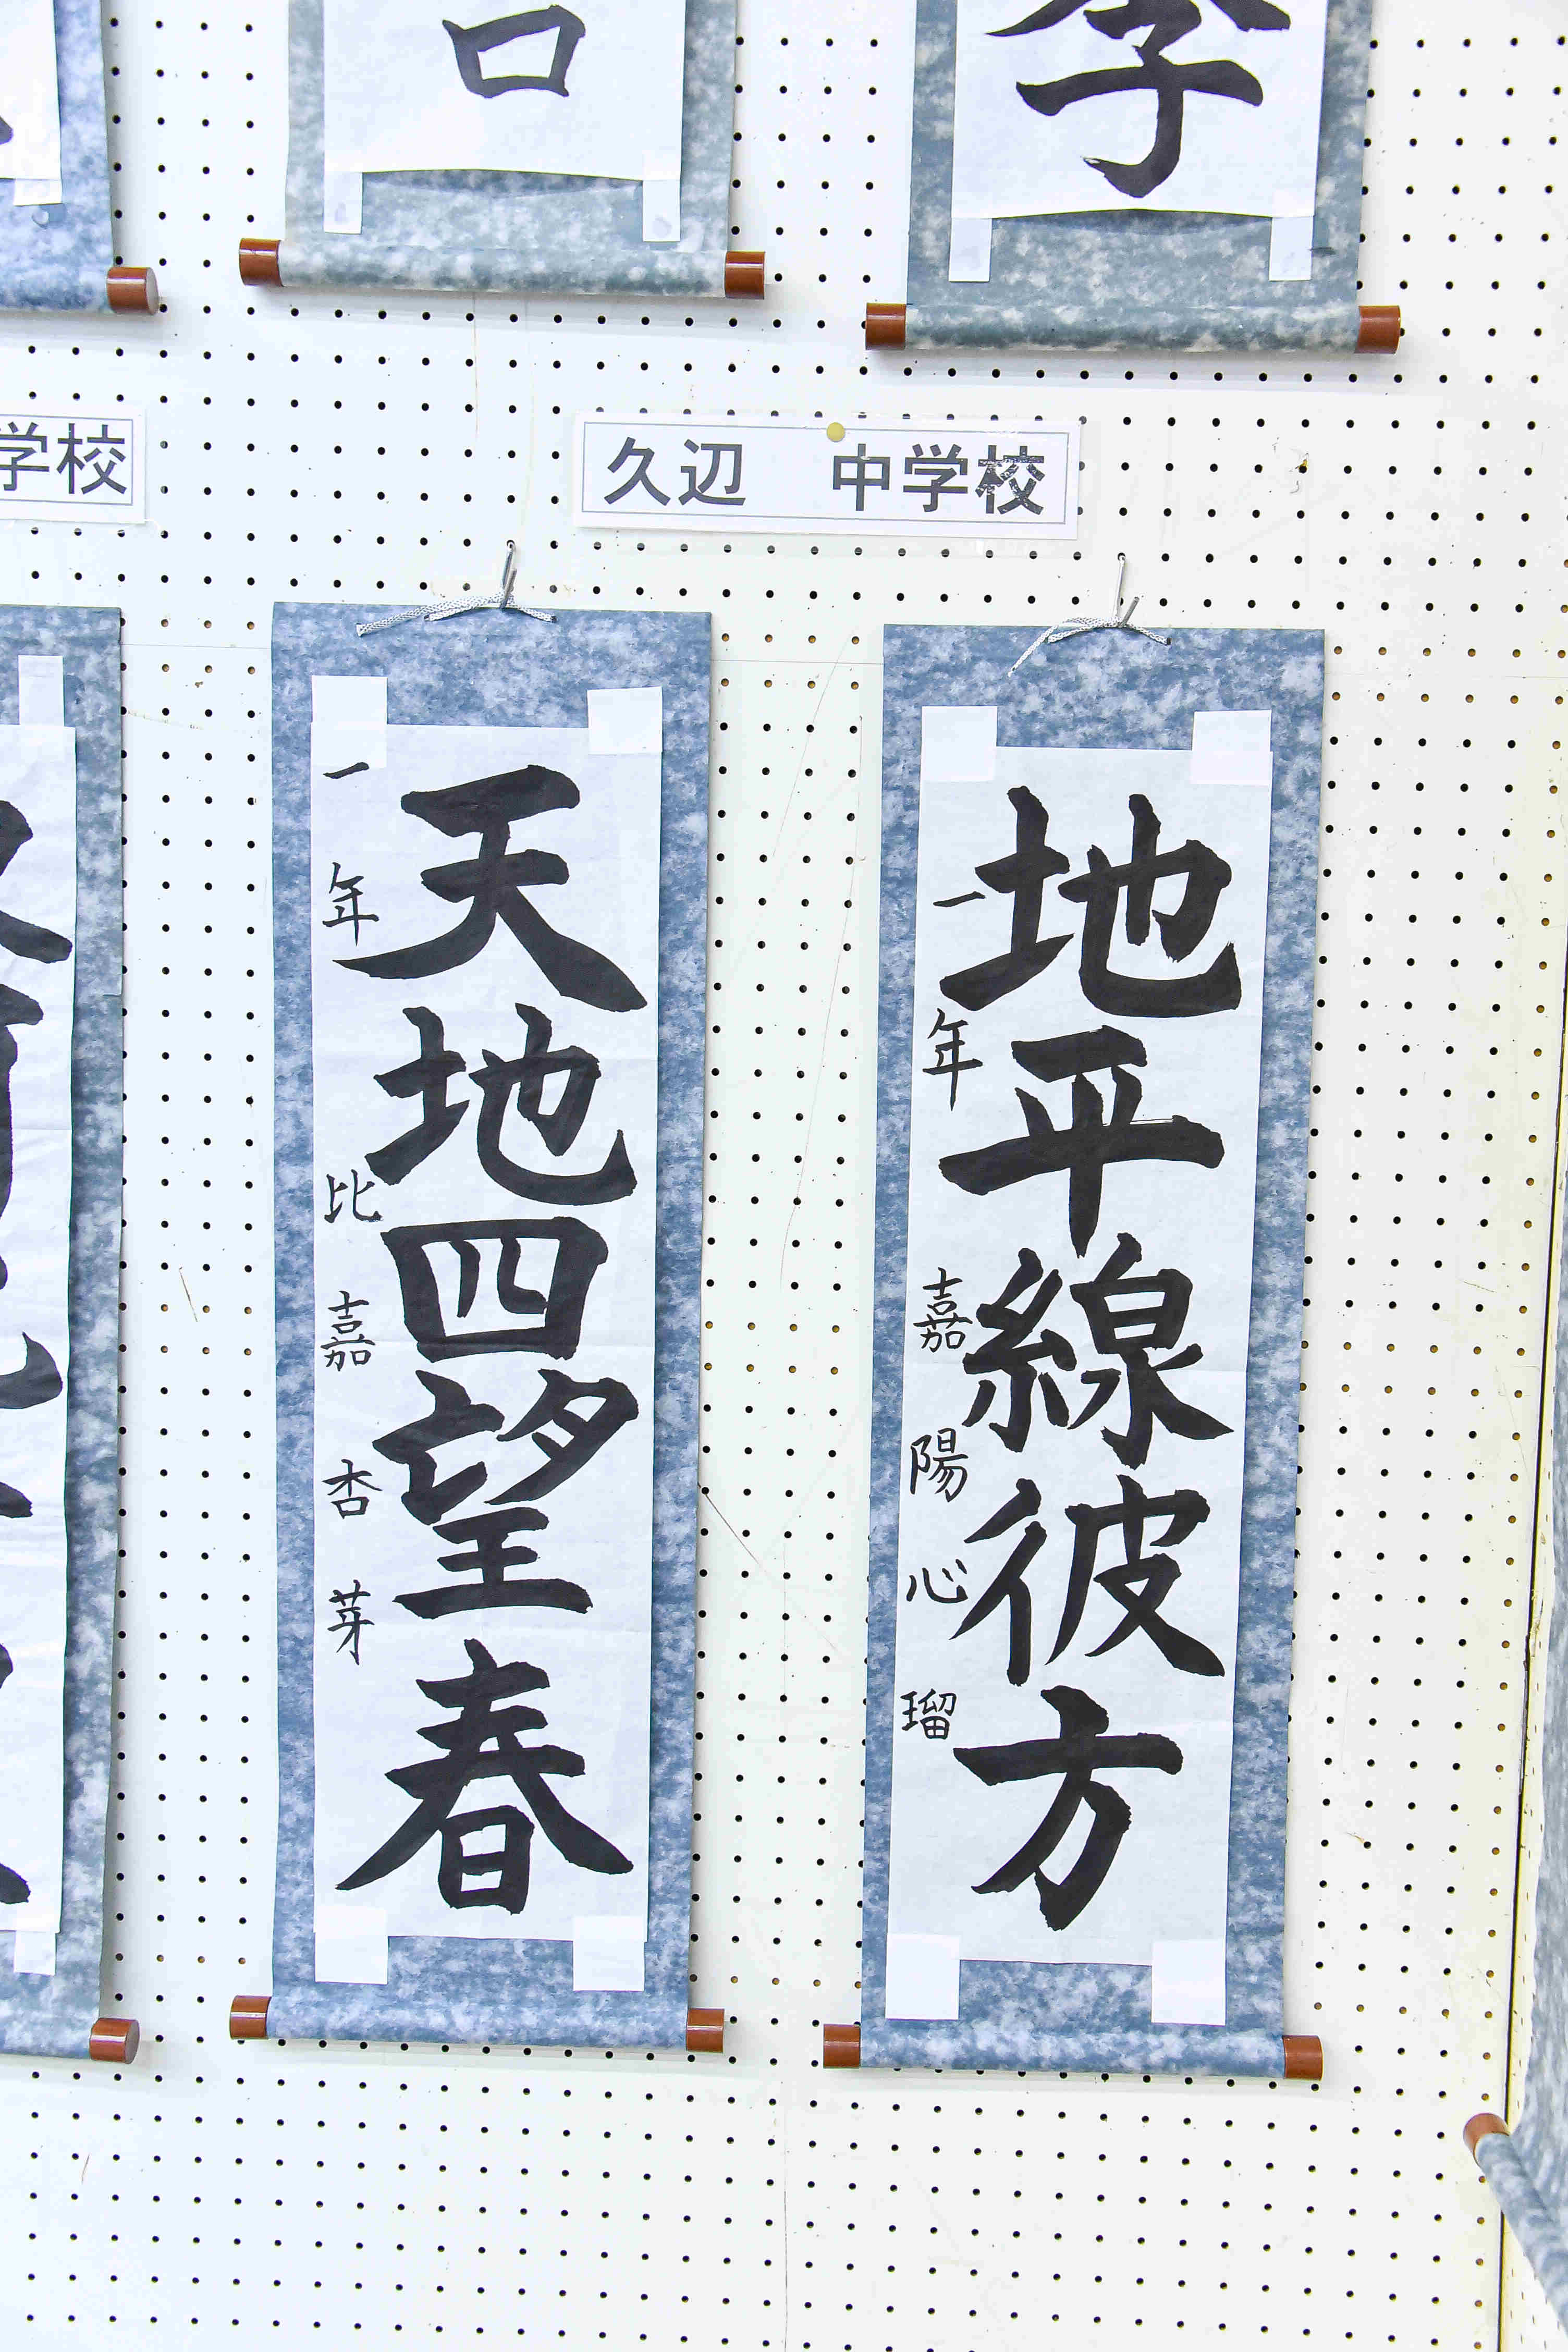 口
季
学校
久辺 中学校
地平線彼方
一年 嘉陽心瑠
天地四望春
一年 比嘉杏芽